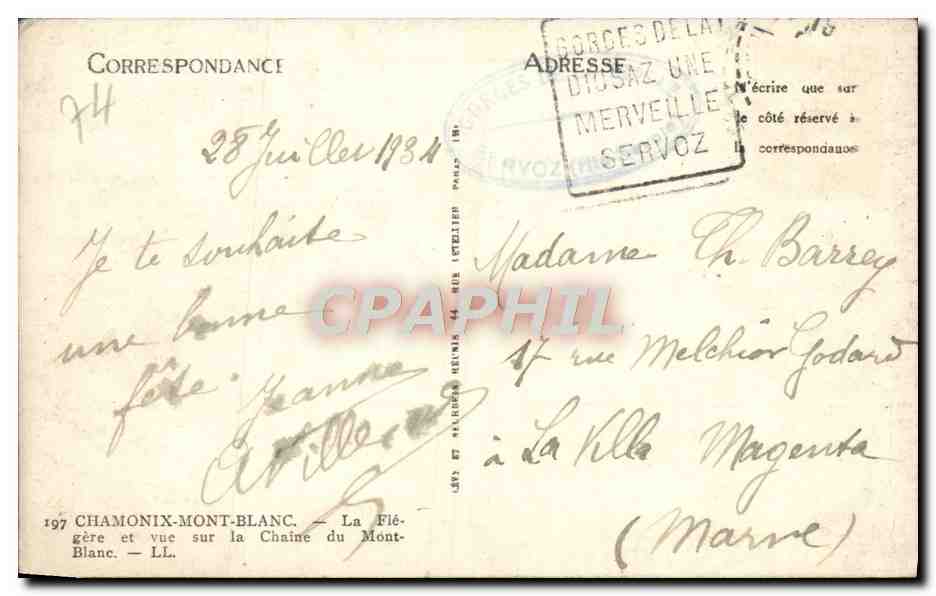 CORRESPONDANCE
ADRESSE
74
N'écrire que sur
le côté réservé à
la correspondance
GORGES DE LA
DIOSAZ UNE
MERVEILLE
SERVOZ
GORGES
RVOZ
28 Juillet 1934
Je te souhaite
une bonne
fête.
Jeanne
Madame Th. Barrey
17 rue Melchior Godard
à La Ville Magenta
(Marne)
LÉVY ET NEURDEIN RÉUNIS 44 RUE LETELLIER PARIS
CPAPHIL
197 CHAMONIX-MONT-BLANC. — La Flé-
gère et vue sur la Chaîne du Mont-
Blanc. — LL.